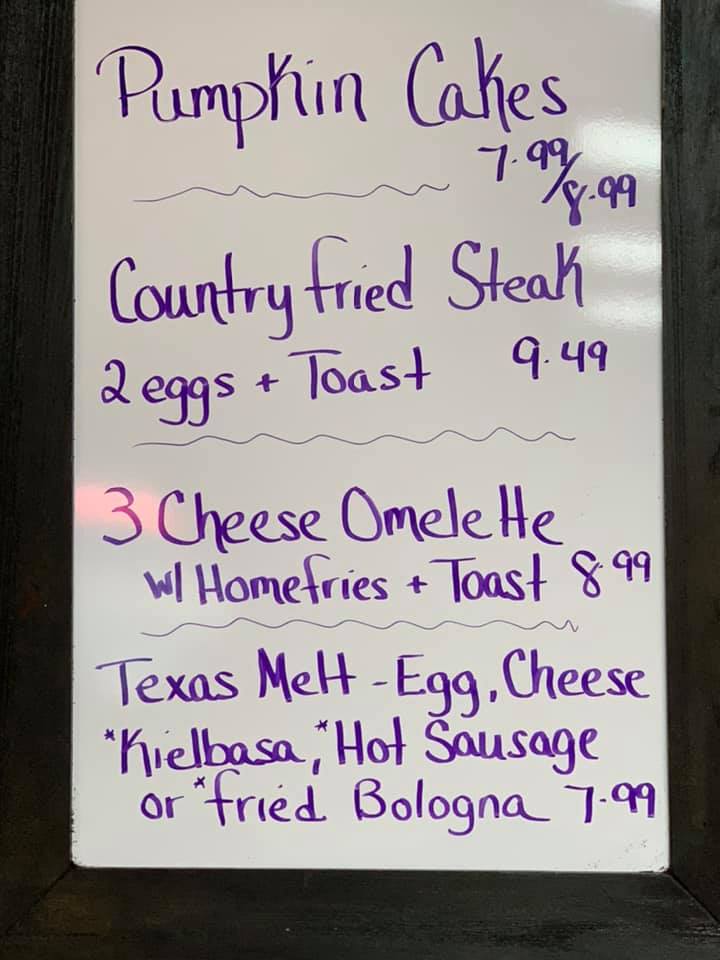 Pumpkin Cakes
7.99/8.99
Country fried Steak
2 eggs + Toast 9.49
3 Cheese Omelette
w/ Homefries + Toast 8.99
Texas Melt - Egg, Cheese
*Kielbasa, *Hot Sausage
or *fried Bologna 7.99